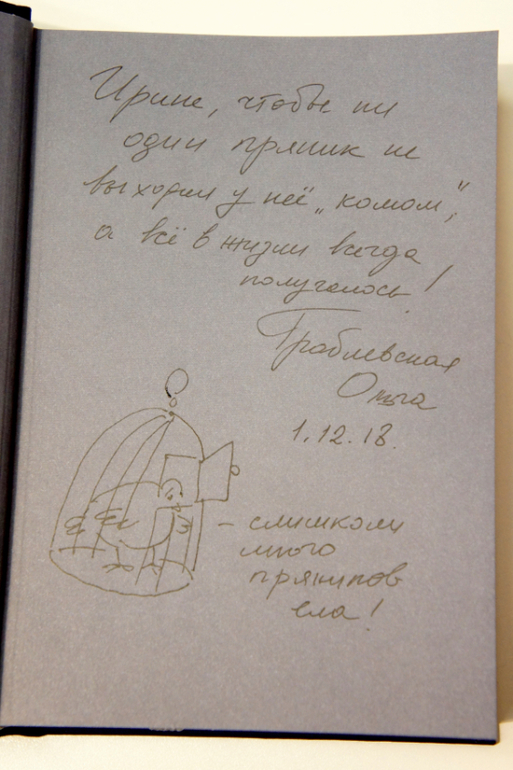 Ирине, чтобы ни
один пряник не
выходил у неё „комом",
а всё в жизни всегда
получалось!
Траблевская
Ольга
1.12.18.
– слишком
много
пряников
ела!